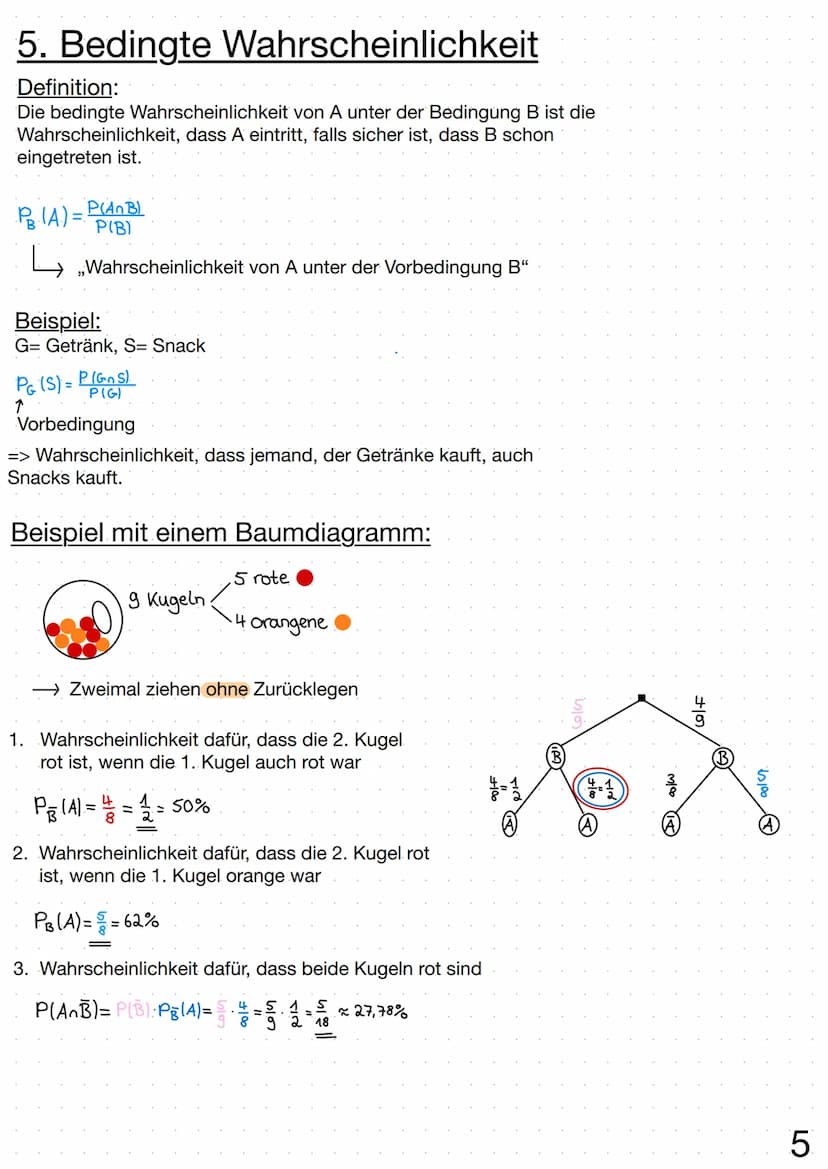 5. Bedingte Wahrscheinlichkeit
Definition:
Die bedingte Wahrscheinlichkeit von A unter der Bedingung B ist die
Wahrscheinlichkeit, dass A eintritt, falls sicher ist, dass B schon
eingetreten ist.
P_B (A) = P(A∩B) / P(B)
„Wahrscheinlichkeit von A unter der Vorbedingung B“
Beispiel:
G= Getränk, S= Snack
P_G (S) = P(G∩S) / P(G)
↑
Vorbedingung
=> Wahrscheinlichkeit, dass jemand, der Getränke kauft, auch
Snacks kauft.
Beispiel mit einem Baumdiagramm:
9 Kugeln
5 rote
4 orangene
→ Zweimal ziehen ohne Zurücklegen
5/9 4/9
B̄ B
4/8=1/2 4/8=1/2 3/8 5/8
Ā A Ā A
1. Wahrscheinlichkeit dafür, dass die 2. Kugel
rot ist, wenn die 1. Kugel auch rot war
P_B̄ (A) = 4/8 = 1/2 = 50%
2. Wahrscheinlichkeit dafür, dass die 2. Kugel rot
ist, wenn die 1. Kugel orange war
P_B (A) = 5/8 = 62%
3. Wahrscheinlichkeit dafür, dass beide Kugeln rot sind
P(A∩B̄)= P(B̄)·P_B̄(A)= 5/9 · 4/8 = 5/9 · 1/2 = 5/18 ≈ 27,78%
5